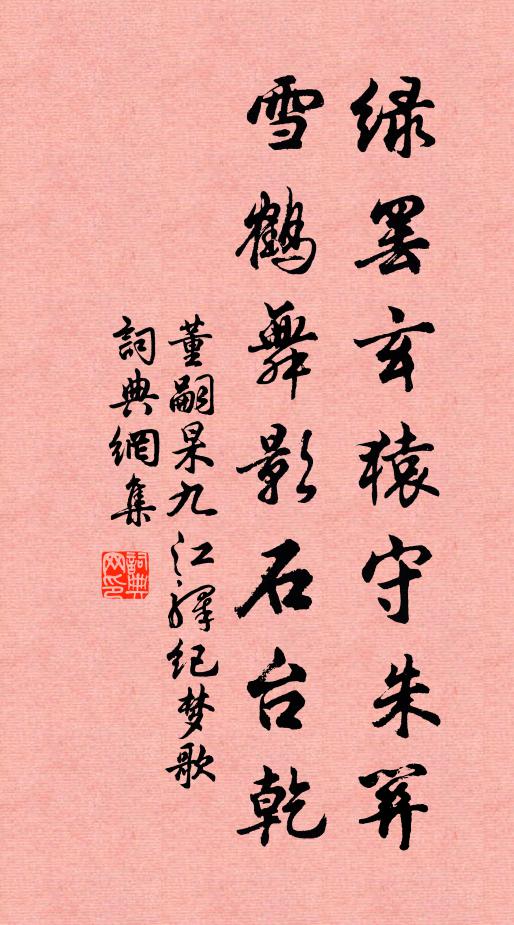 绿罢玄猿守朱
雪鶴舞影石台乾
董嗣杲九江驛纪梦歌
詞典網集
詞典网印